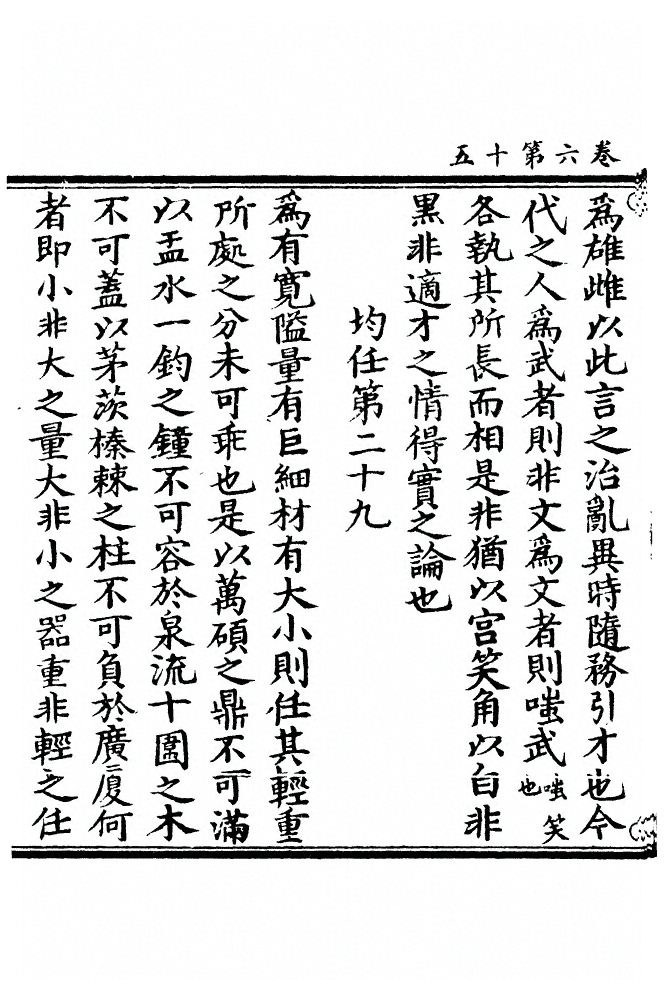 卷六第十五
爲雄雌以此言之治亂異時隨務引才也今
代之人爲武者則非文爲文者則嗤武嗤笑也
各執其所長而相是非猶以宮笑角以白非
黑非適才之情得實之論也
均任第二十九
爲有寬隘量有巨細材有大小則任其輕重
所處之分未可乖也是以萬碩之鼎不可滿
以盂水一鈞之鐘不可容於泉流十圍之木
不可蓋以茅茨榛棘之柱不可負於廣廈何
者即小非大之量大非小之器重非輕之任